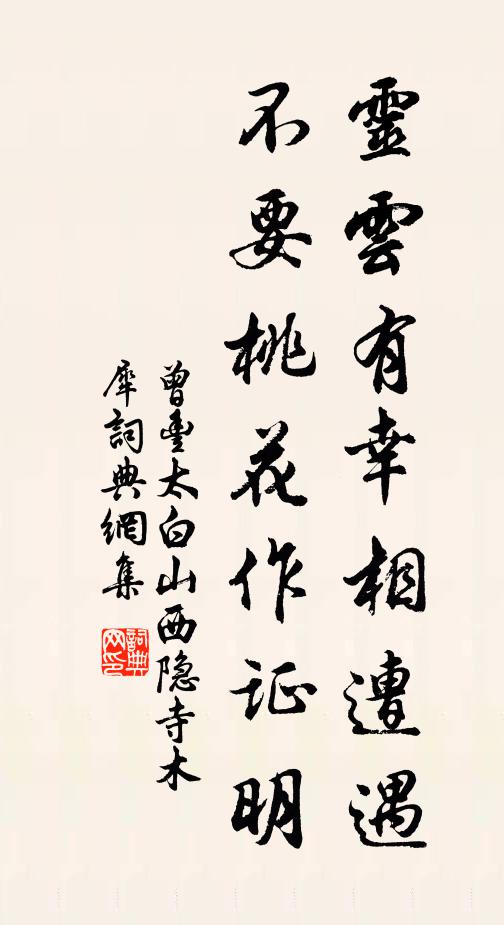 靈雲有幸相遭遇
不要桃花作证明
曾豐太白山西隐寺木
犀詞典網集
詞典
网印